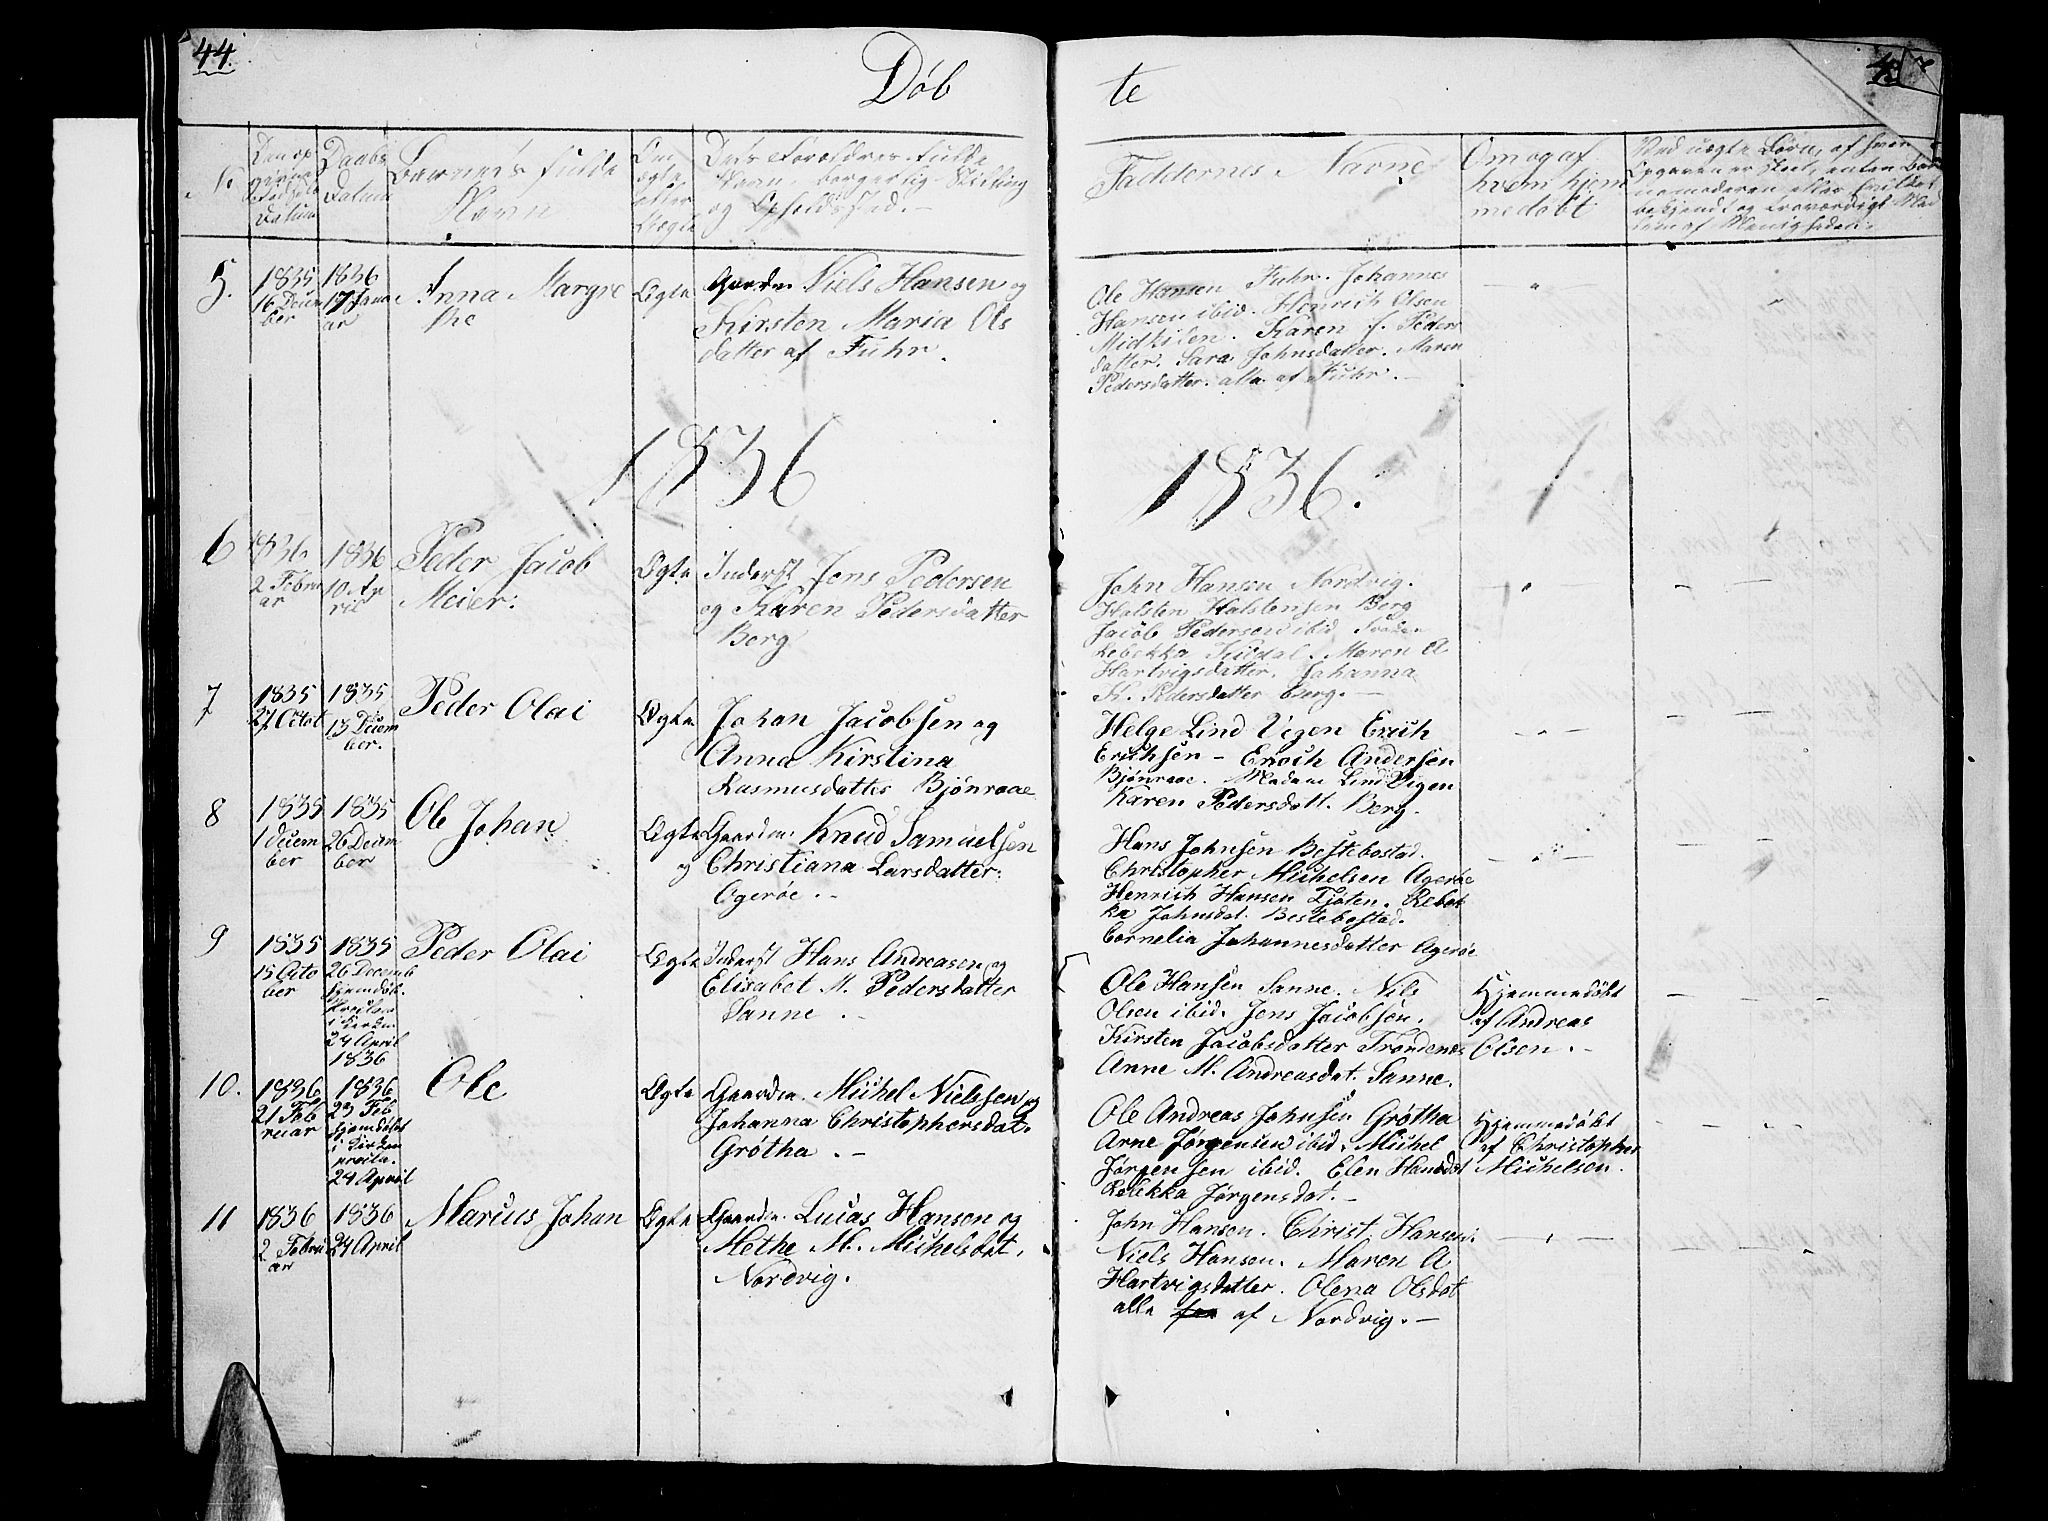 44.
Døb
te
No
Den op
givne
Fødsels
Datum
Daabs
Datum
Barnets fulde
Navn
Om
ægte
eller
Uægte
Dets Forældres fulde
Navn, borgerlig Stilling
og Opholdssted.
Faddernes Navne
Om og af
hvem hjem
medøbt
Ved uægte Børn, af hvem
Opgaven er skeet, enten Bar
nemoderen eller
bekjendt og troværdigt Med
lem af Menigheden.
5.
1835
16 Decem
ber
1836
17 Janu
ar
Anna Margre
the
Ægte
Gaardm. Niels Hansen og
Kirsten Maria Ols
datter af Fuhr.
Ole Hansen Fuhr. Johannes
Hansen ibid. Henrich Olsen
Midkilen. Karen J. Peders
datter. Sara Johnsdatter. Maren
Pedersdatter. alle af Fuhr. —
1836
1836.
6
1836
2 Febru
ar
1836
10 Ap
ril
Peder Jacob
Meier.
Ægte
Inderst Jens Pedersen
og Karen Pedersdatter
Berg
John Hansen Nordvig.
Halsten Halstensen Berg
Jacob Pedersen ibid
Rebekka Kildal. Maren A
Hartvigsdatter. Johanna
K. Pedersdatter Berg. —
7
1835
27 Octob
1835
13 Decem
ber.
Peder Olai
Ægte
Johan Jacobsen og
Anna Kirstina
Rasmusdatter Bjønraae
Helge Lind Vigen Erich
Erichsen – Enoch Andersen
Bjønraae. Madam Lind Vigen
Karen Pedersdatt. Berg.
8
1835
1 Decem
ber
1835
26 Decem
ber
Ole Johan
Ægte
Gaardm. Knud Samuelsen
og Christiana Larsdatter.
Ogerøe. –
Hans Johnsen Bestebostad.
Christopher Michelsen Agerøe
Henrich Hansen Tjøten. Rebek
ka Johnsdat. Bestebostad.
Cornelia Johannesdatter Agerøe
9
1835
15 Octo
ber
1835
26 Decemb
hjemdøbt.
i Kirken
24 April
1836
Peder Olai
Ægte
Inderst Hans Andreasen og
Elisabet M. Pedersdatter
Sanne. –
Ole Hansen Sanne. Nils
Olsen ibid. Jens Jacobsen.
Kirsten Jacobsdatter Trondenes
Anne M. Andreasdat. Sanne.
Hjemmedøbt
af Andreas
Olsen. –
10.
1836
21 Feb
ruar
1836
23 Feb
hjemdøbt
i Kirken
præsta.
24 April
Ole
Ægte
Gaardm. Michel Nielssen og
Johanna Christophersdat.
Grøtha. –
Ole Andreas Johnsen Grøtha
Arne Jørgensen ibid. Michel
Jørgensen ibid. Elen Hansdat
Rebekka Jørgensdat. –
Hjemmedøbt
af Christopher
Michelsen.
11
1836
2 Febru
ar
1836
24 April
Marcus Johan
Ægte
Gaardm. Lucas Hansen og
Methe M. Michelsdat.
Nordvig.
John Hansen. Christ. Hansen.
Niels Hansen. Maren A
Hartvigsdatter. Olena Olsdat
alle af Nordvig. —